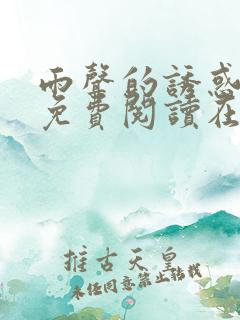 雨聲的誘惑
免費閱讀在
推古天皇
未經同意禁止轉載